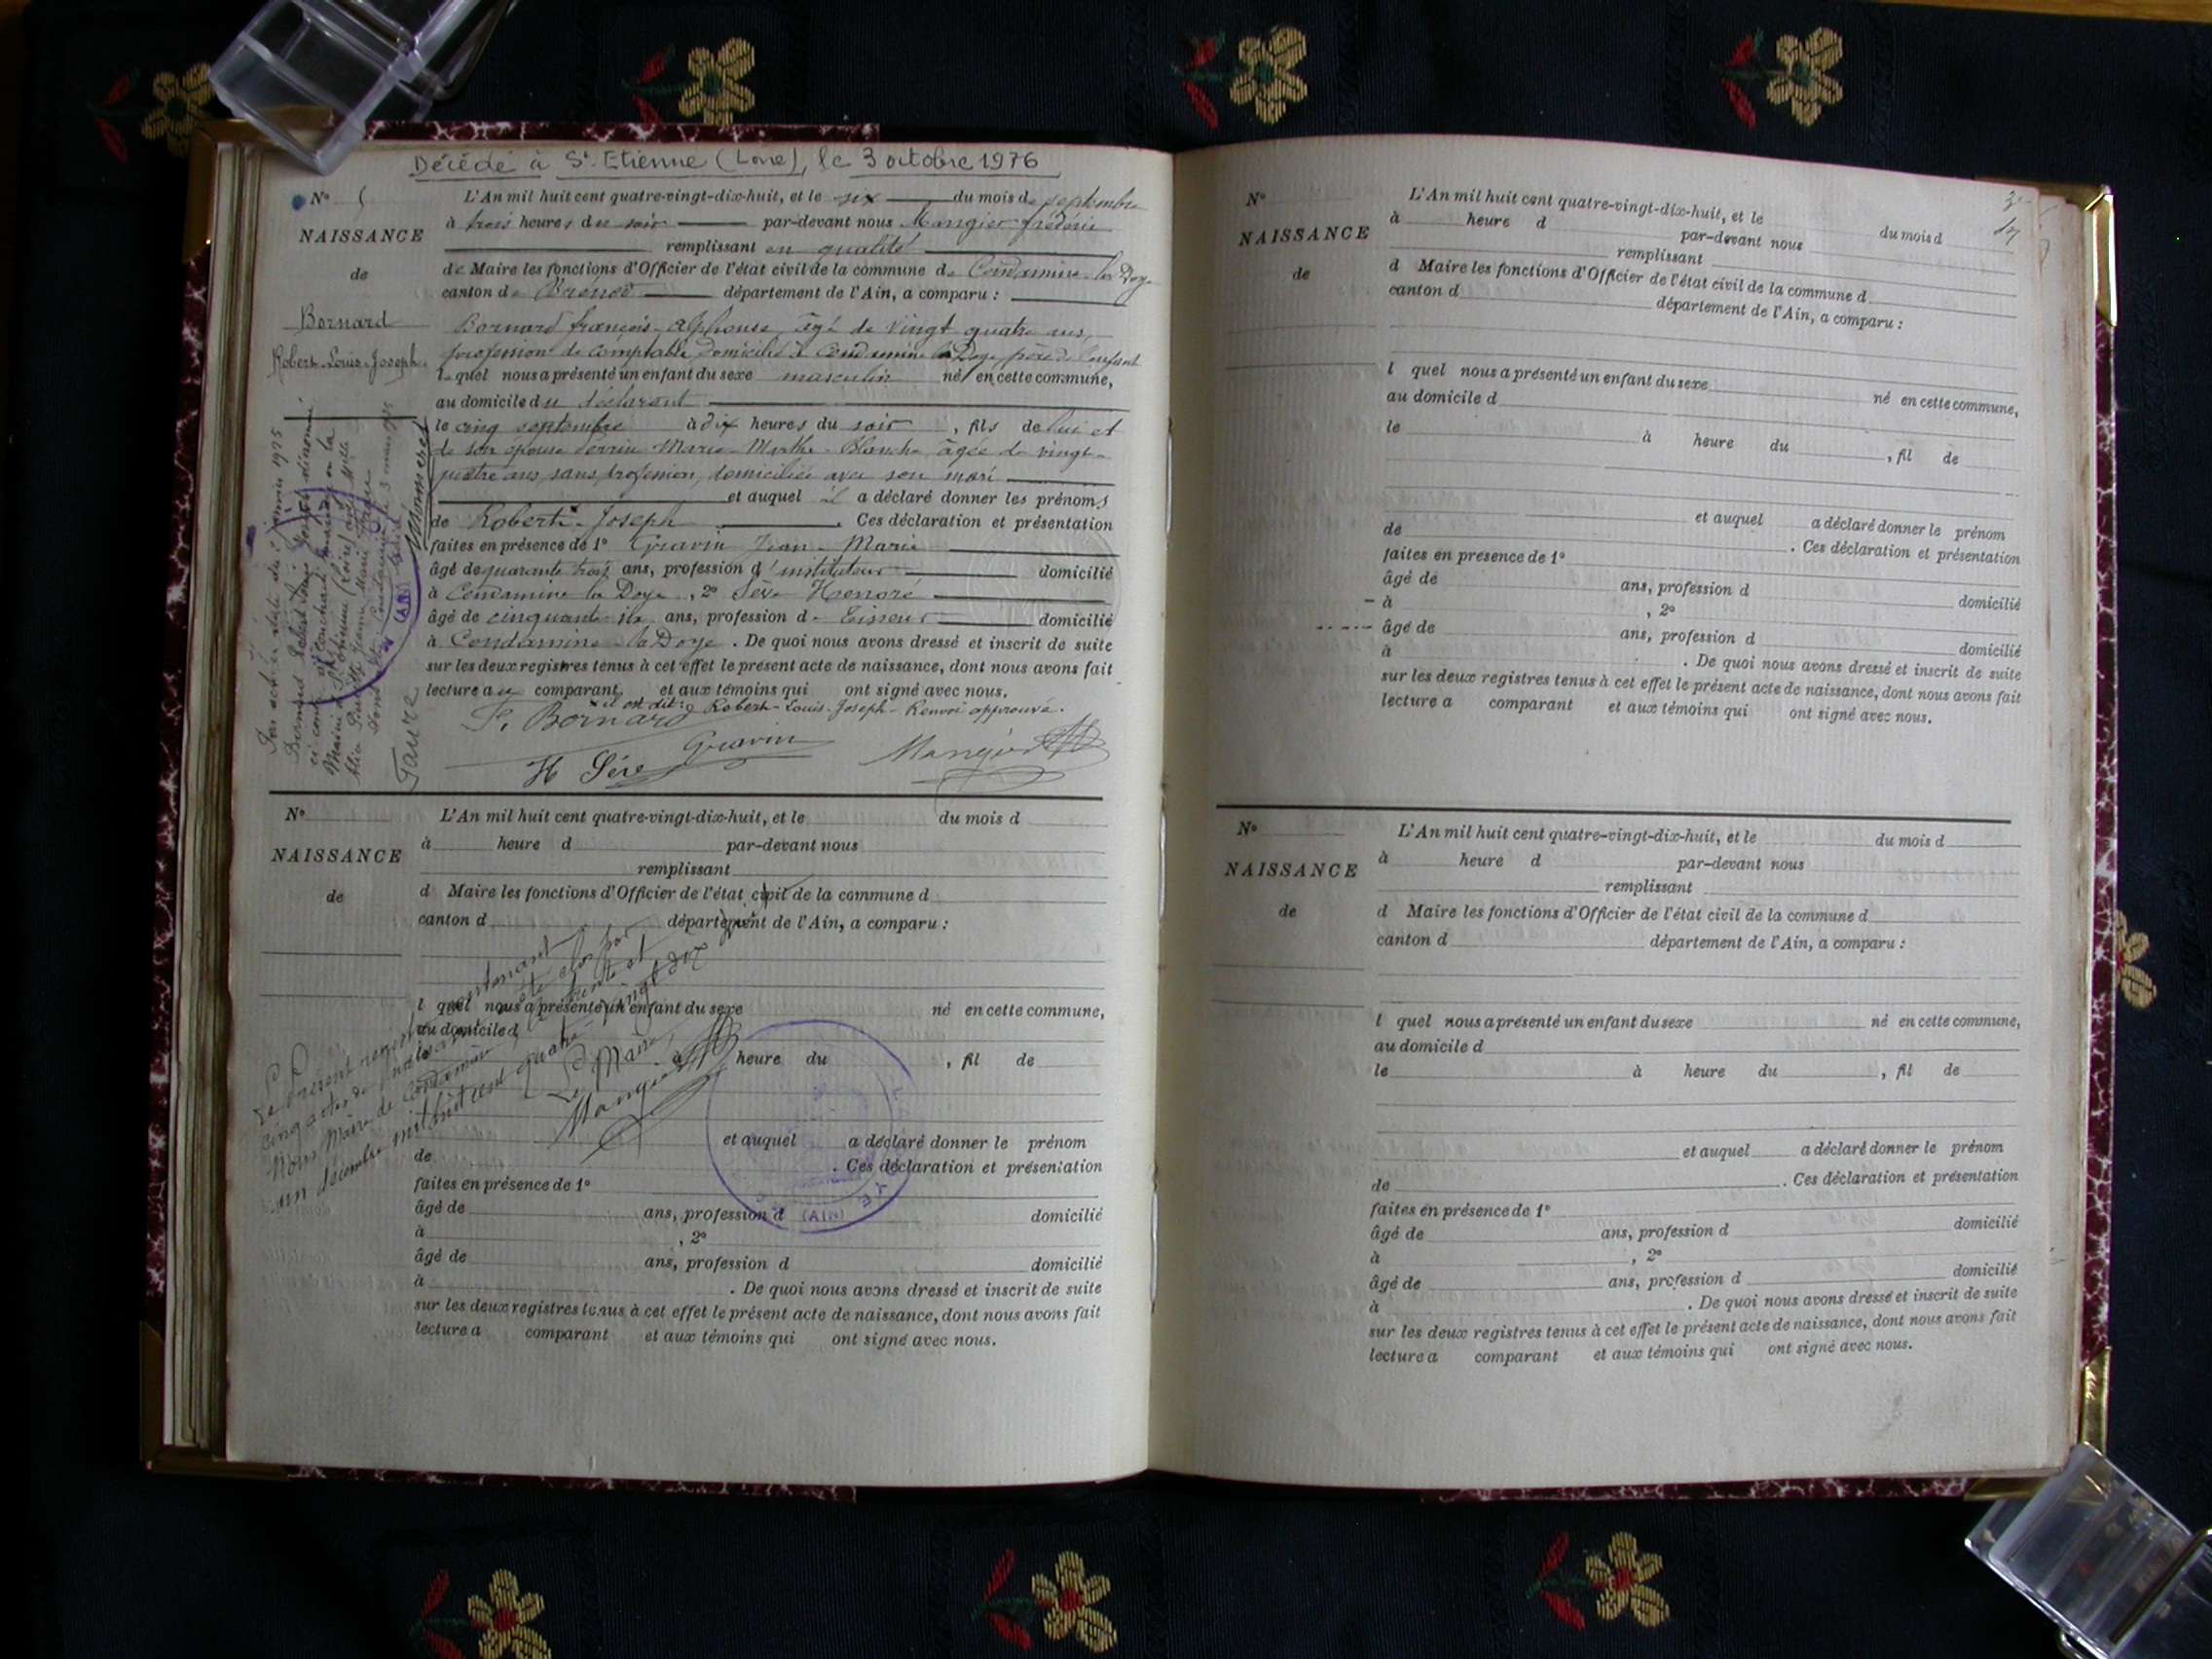 Décédé à St. Etienne (Loire), le 3 octobre 1976
No 5
NAISSANCE
de
Bornard
Robert-Louis-Joseph.
L'An mil huit cent quatre-vingt-dix-huit, et le six du mois de septembre
à trois heures du soir par-devant nous Mangier frédéric
remplissant en qualité
de Maire les fonctions d'Officier de l'état civil de la commune de Condamine-la-Doye
canton de Brénod département de l'Ain, a comparu :
Bornard françois-alphonse, âgé de vingt quatre ans,
profession de comptable domicilié à Condamine la Doye père de l'enfant
lequel nous a présenté un enfant du sexe masculin né en cette commune,
au domicile du déclarant
le cinq septembre à dix heures du soir, fils de lui et
de son épouse Perrin Marie-Marthe-Blanche, âgée de vingt-
quatre ans, sans profession, domiciliée avec son mari
et auquel il a déclaré donner les prénoms
de Robert-Joseph. Ces déclaration et présentation
faites en présence de 1° Gravin Jean-Marie
âgé de quarante trois ans, profession d'instituteur domicilié
à Condamine la Doye, 2° Sève Honoré
âgé de cinquante six ans, profession de Tisseur domicilié
à Condamine-la-Doye. De quoi nous avons dressé et inscrit de suite
sur les deux registres tenus à cet effet le présent acte de naissance, dont nous avons fait
lecture au comparant et aux témoins qui ont signé avec nous.
il est dit: Robert-Louis-Joseph-Renvoi approuvé.
F. Bornard
Gravin
H Sève
Mangier
Faure
No
NAISSANCE
de
L'An mil huit cent quatre-vingt-dix-huit, et le du mois d
à heure d par-devant nous
remplissant
d Maire les fonctions d'Officier de l'état civil de la commune d
canton d département de l'Ain, a comparu :
l quel nous a présenté un enfant du sexe né en cette commune,
au domicile d
à heure du , fil de
et auquel a déclaré donner le prénom
de . Ces déclaration et présentation
faites en présence de 1°
âgé de ans, profession d domicilié
à , 2°
âgé de ans, profession d domicilié
à . De quoi nous avons dressé et inscrit de suite
sur les deux registres tenus à cet effet le présent acte de naissance, dont nous avons fait
lecture a comparant et aux témoins qui ont signé avec nous.
Le Présent registre contenant
cinq actes de naissance
Nous Maire de Condamine
un décembre mil huit cent quatre-vingt dix
Le Maire,
Mangier
(AIN)
No
NAISSANCE
de
L'An mil huit cent quatre-vingt-dix-huit, et le du mois d
à heure d par-devant nous
remplissant
d Maire les fonctions d'Officier de l'état civil de la commune d
canton d département de l'Ain, a comparu :
l quel nous a présenté un enfant du sexe né en cette commune,
au domicile d
le à heure du , fil de
et auquel a déclaré donner le prénom
de . Ces déclaration et présentation
faites en présence de 1°
âgé de ans, profession d domicilié
à , 2°
âgé de ans, profession d domicilié
à . De quoi nous avons dressé et inscrit de suite
sur les deux registres tenus à cet effet le présent acte de naissance, dont nous avons fait
lecture a comparant et aux témoins qui ont signé avec nous.
No
NAISSANCE
de
L'An mil huit cent quatre-vingt-dix-huit, et le du mois d
à heure d par-devant nous
remplissant
d Maire les fonctions d'Officier de l'état civil de la commune d
canton d département de l'Ain, a comparu :
l quel nous a présenté un enfant du sexe né en cette commune,
au domicile d
le à heure du , fil de
et auquel a déclaré donner le prénom
de . Ces déclaration et présentation
faites en présence de 1°
âgé de ans, profession d domicilié
à , 2°
âgé de ans, profession d domicilié
à . De quoi nous avons dressé et inscrit de suite
sur les deux registres tenus à cet effet le présent acte de naissance, dont nous avons fait
lecture a comparant et aux témoins qui ont signé avec nous.